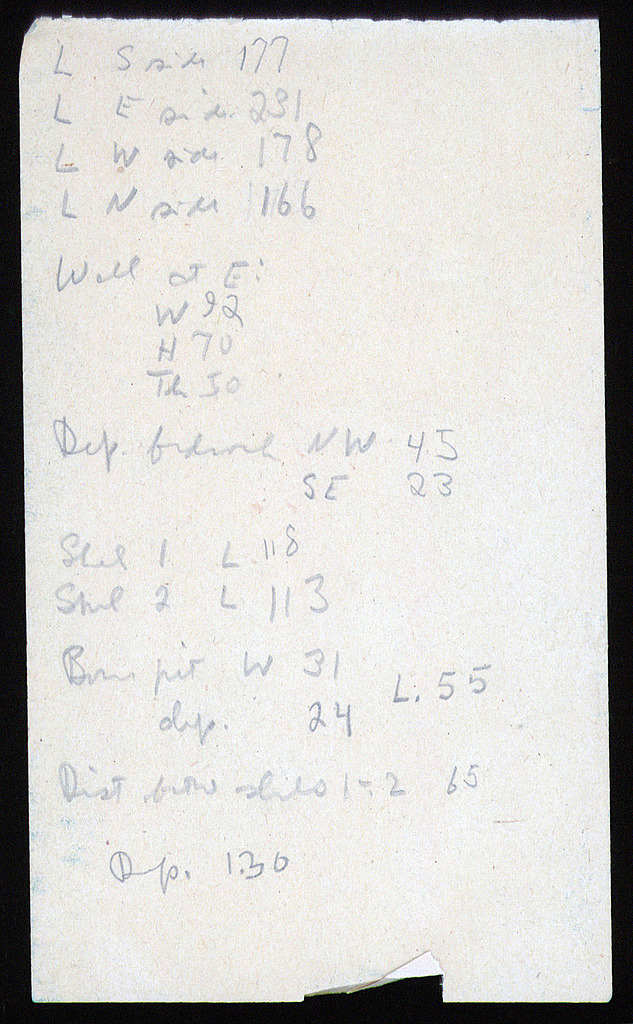 L S side 177
L E side 231
L W side 178
L N side 166
Wall at E:
W 92
H 70
Th 50
Dep. bedrock NW 45
SE 23
Skel 1 L 118
Skel 2 L 113
Bone pit W 31 L. 55
dep. 24
Dist betw skels 1-2 65
Dep. 1.30